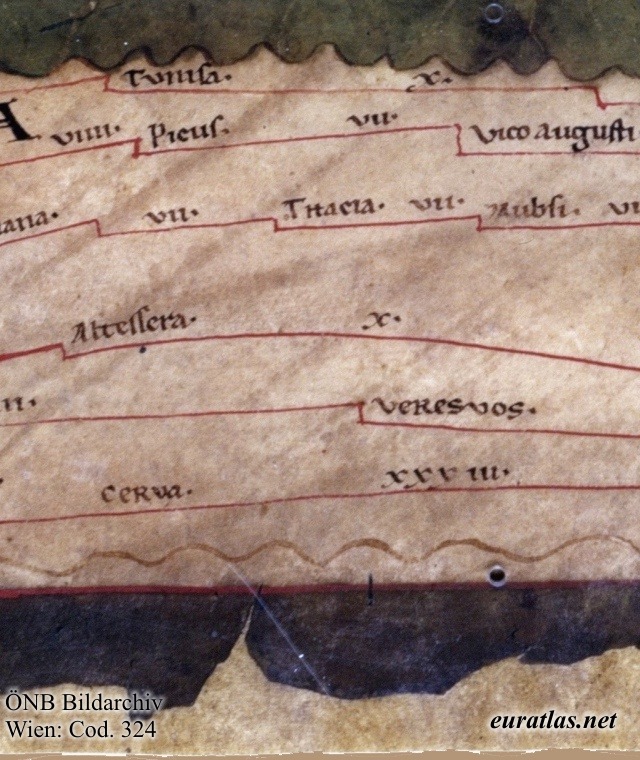 Tuniſa. x.
A viiii. Picus. vii. Vico auguſti
ana. vii. Thacia. vii. Aubſi. vi
Alteſſera. x.
ii. veresvos.
cerva. xxxiii.
ÖNB Bildarchiv
Wien: Cod. 324
euratlas.net